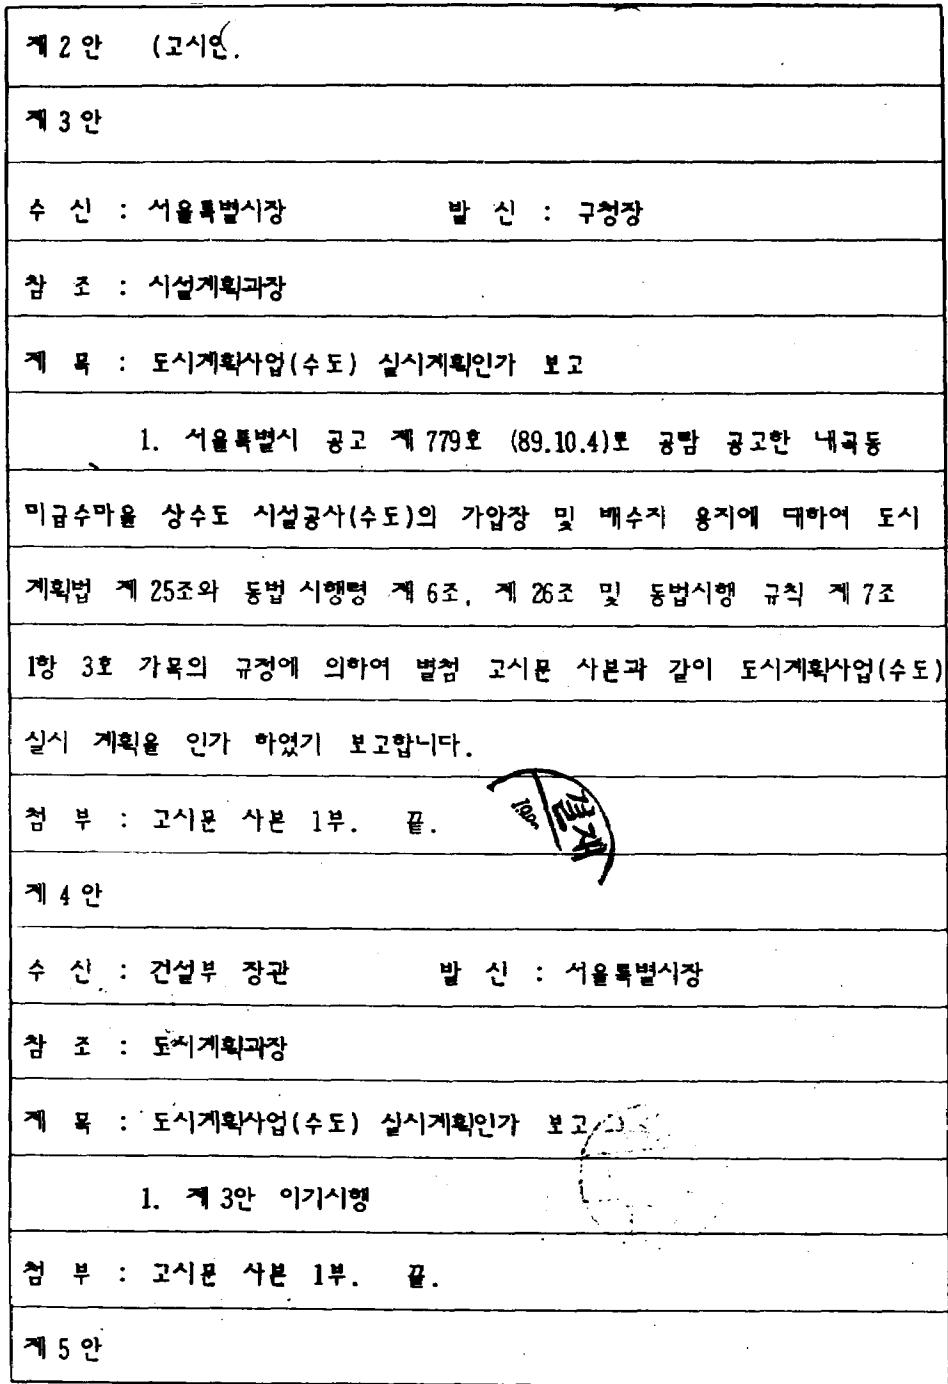 제 2 안 (고시안.
제 3 안
수 신 : 서울특별시장 발 신 : 구청장
참 조 : 시설계획과장
제 목 : 도시계획사업(수도) 실시계획인가 보고
1. 서울특별시 공고 제 779호 (89.10.4)로 공람 공고한 내곡동
미급수마을 상수도 시설공사(수도)의 가압장 및 배수지 용지에 대하여 도시
계획법 제 25조와 동법 시행령 제 6조, 제 26조 및 동법시행 규칙 제 7조
1항 3호 가목의 규정에 의하여 별첨 고시문 사본과 같이 도시계획사업(수도)
실시 계획을 인가 하였기 보고합니다.
첨 부 : 고시문 사본 1부. 끝.
결재
제 4 안
수 신 : 건설부 장관 발 신 : 서울특별시장
참 조 : 도시계획과장
제 목 : 도시계획사업(수도) 실시계획인가 보고
1. 제 3안 이기시행
첨 부 : 고시문 사본 1부. 끝.
제 5 안